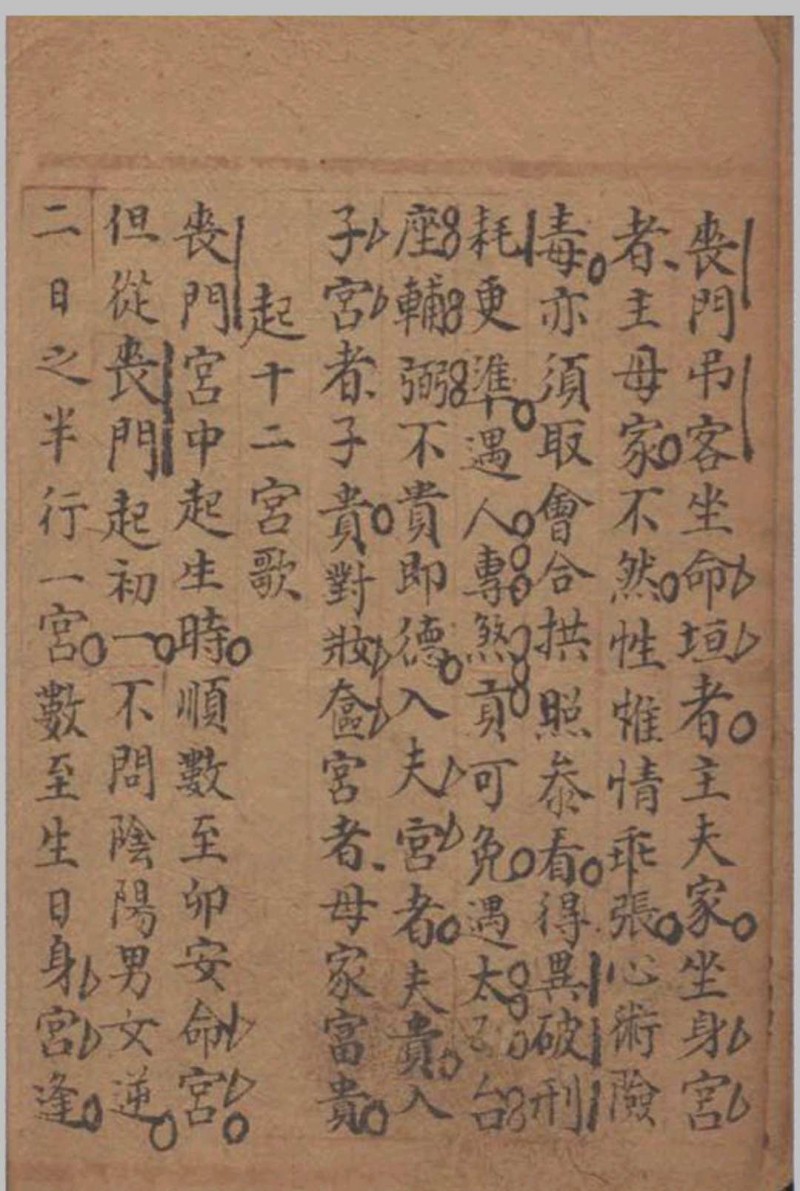 喪門吊客坐命垣者主夫家坐身宮
者主母家不然性惟情乖張心術險
毒亦須取會合拱照叅看得異破刑
耗更準遇人專煞貢可免遇太台
座輔弼不貴即德入夫宮者夫貴入
子宮者子貴對妝奩宮者母家富貴
起十二宮歌
喪門宮中起生時順數至卯安命宮
但從喪門起初一不問陰陽男女逆
二日之半行一宮數至生日身宮逢